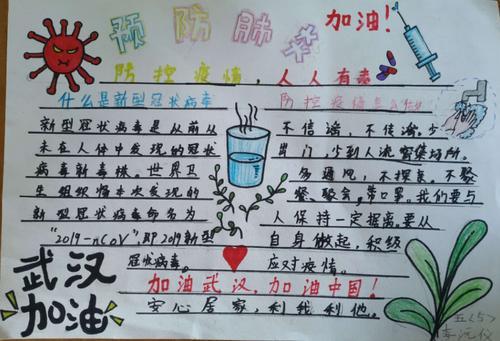 预防肺炎
加油!
防控疫情,人人有责
什么是新型冠状病毒
新型冠状病毒是从前从
未在人体中发现的冠状
病毒新毒株。世界卫
生组织将本次发现的
新型冠状病毒命名为
"2019-nCoV",即2019新型
冠状病毒。
防控疫情怎么做
不信谣,不传谣。少
出门,少到人流密集场所。
多通风,不探亲,不聚
餐、聚会,带口罩。我们要与
人保持一定据离。要从
自身做起,积极
应对疫情。
武汉
加油
加油武汉,加油中国!
安心居家,利我利他。
五<5>